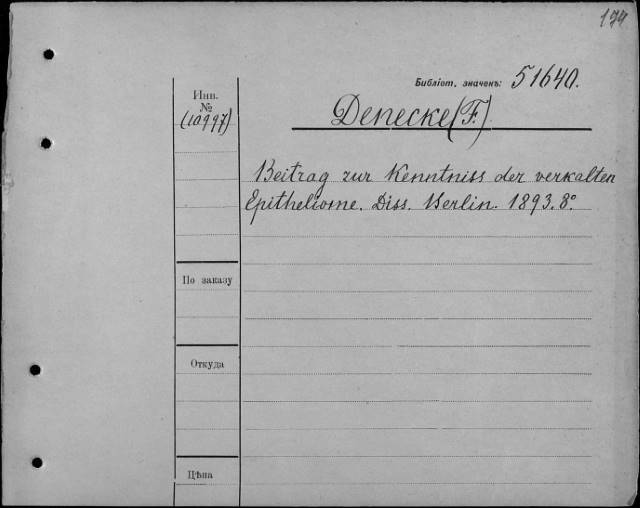 174
Библіот. значекъ: 51640.
Инв.
№
(10997)
Denecke (F.)
Beitrag zur Kenntniss der verkalten
Epitheliome. Diss. Berlin. 1893. 8°
По заказу
Откуда
Цѣна